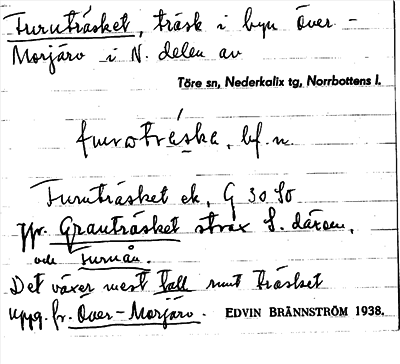 Furuträsket, träsk i byn Över-
Morjärv i N. delen av
Töre sn, Nederkalix tg, Norrbottens l.
furotráska, bf. n.
Furuträsket ek. G 30 SO
jfr. Granträsket strax S. därom,
och Furuån.
Det växer mest tall runt träsket
uppg. fr. Över-Morjärv. EDVIN BRÄNNSTRÖM 1938.